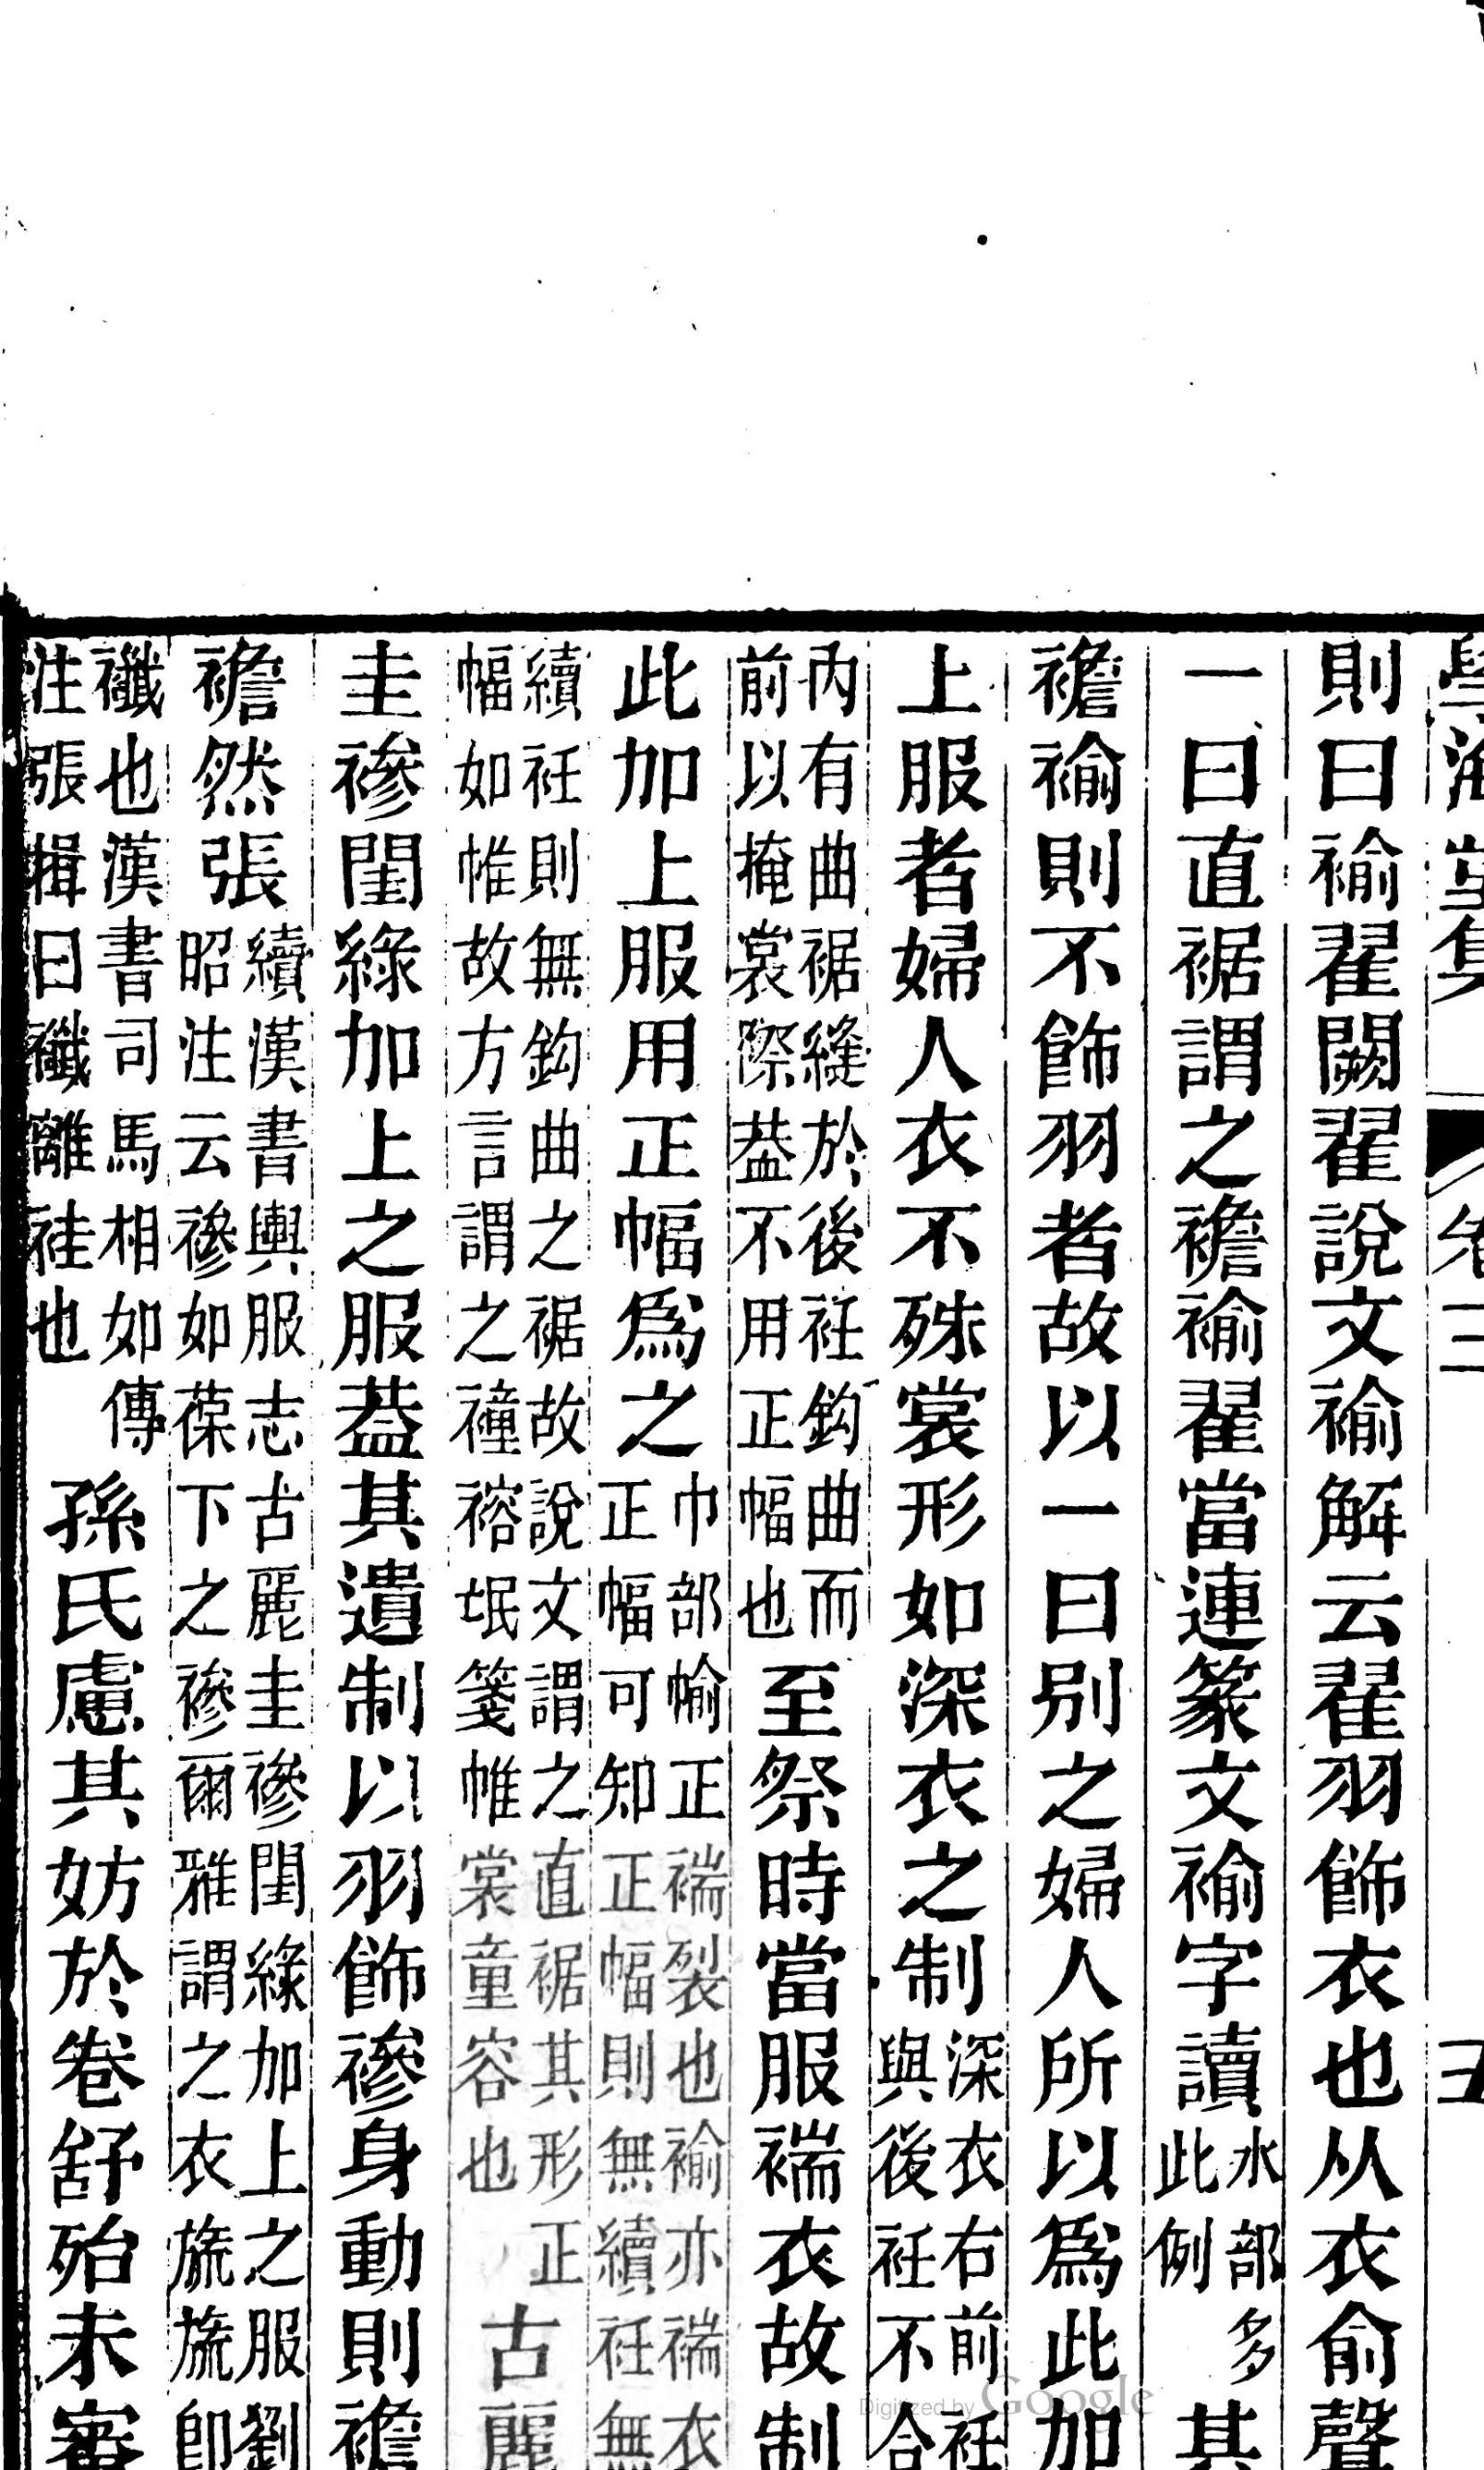 學海堂集 卷三 五
則曰褕翟闕翟說文褕解云翟羽飾衣也从衣俞聲
一曰直裾謂之襜褕翟當連篆文褕字讀水部多
此例其
襜褕則不飾羽者故以一曰別之婦人所以爲此加
上服者婦人衣不殊裳形如深衣之制深衣右前衽
與後衽不合
內有曲裾縫於後衽鈎曲而
前以掩裳際葢不用正幅也至祭時當服褍衣故制
此加上服用正幅爲之巾部㡏正褍裂也褕亦褍衣
正幅可知正幅則無續衽無
續衽則無鈎曲之裾故說文謂之直裾其形正
幅如帷故方言謂之䙱褣氓箋帷裳童容也古麗
圭襂閨緣加上之服葢其遺制以羽飾襂身動則襜
襜然張續漢書輿服志古麗圭襂閨緣加上之服劉
昭注云襂如葆下之襂爾雅謂之衣旒旒卽
襳也漢書司馬相如傳
注張揖曰襳離袿也孫氏慮其妨於卷舒殆未審
Digitized by Google